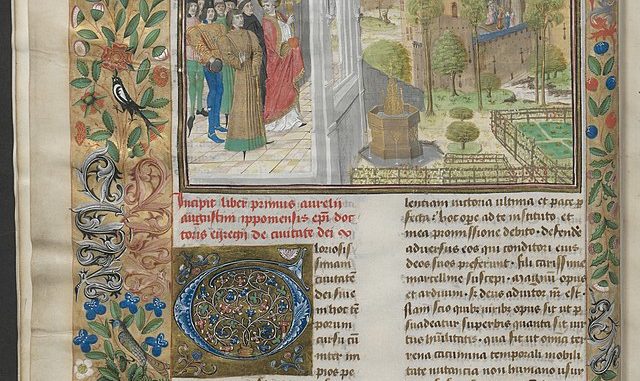 Incipit liber primus aurelii
augustini ipponensis epī doc
toris egregii de ciuitate dei
Gloriosis
simam
ciuitatē
dei siue
in hoc tē
porum
cursu cū
inter im
pios pe
lentiam uictoria ultima et pace p
fecta hoc ope ad te instituto et
mea promissione debito · defende
aduersus eos qui conditori eius
deos suos preferunt · fili carissime
marcelline suscepi · magnū opus
et arduum · s; deus adiutor m̄ est ·
Nam scio quibz uiribz opus sit ut p
suadeatur superbis quanta sit uir
tus humilitatis · qua fit ut omīa ter
rena cacumina temporali mobili
tate nutancia non humano usur